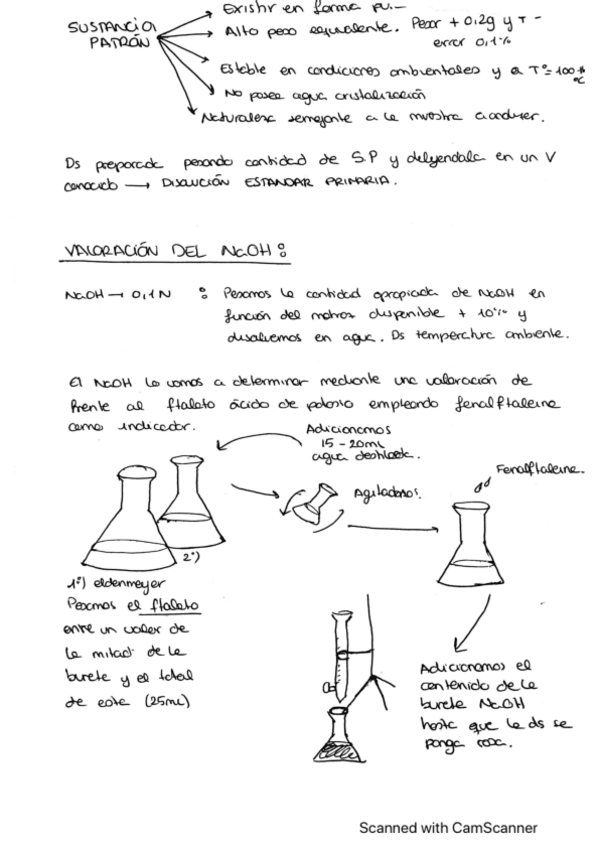 Existir en forma pu.-
SUSTANCIA
PATRÓN
Alto peso equivalente. Pesar + 0,2g y T -
error 0,1%
Estable en condiciones ambientales y a Tº=100
ºC
No posea agua cristalización
Naturaleza semejante a la muestra a analizar.
Ds preparada pesando cantidad de S.P y diluyendola en un V
conocido → DISOLUCIÓN ESTANDAR PRIMARIA.
VALORACIÓN DEL NaOH:
NaOH → 0,1N : Pesamos la cantidad apropiada de NaOH en
función del matraz disponible + 10% y
disolvemos en agua. Ds temperatura ambiente.
El NaOH lo vamos a determinar mediante una valoración de
frente al ftalato ácido de potasio empleando fenalftaleina
como indicador.
Adicionamos
15-20mL
agua destilada.
Agitadamos.
Fenalftaleina.
2º)
1º) eldenmeyer
Pesamos el ftalato
entre un valor de
la mitad de la
burete y el total
de este (25mL)
Adicionamos el
contenido de la
burete NaOH
hasta que la ds se
ponga rosa.
Scanned with CamScanner